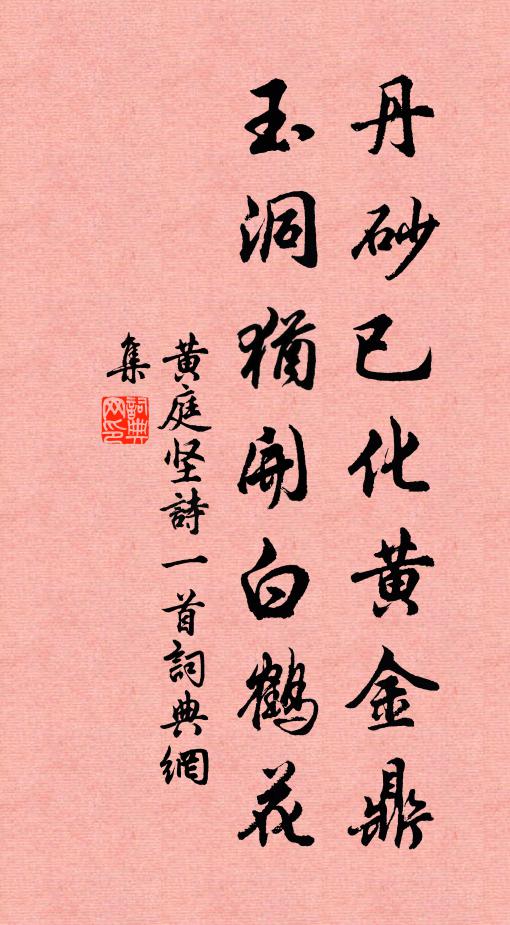 丹砂已化黄金鼎
玉洞猶開白鶴花
黄庭坚詩一首詞典網
集
詞典
网印